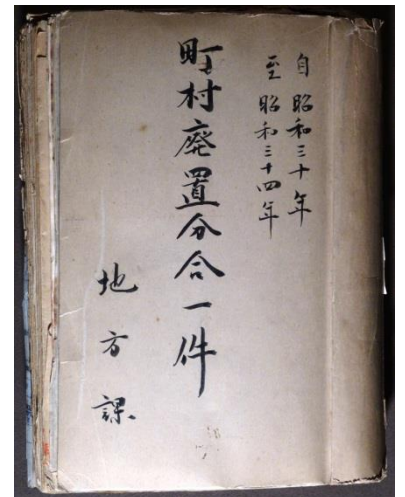 自昭和三十年
至昭和三十四年
町村廃置分合一件
地方課